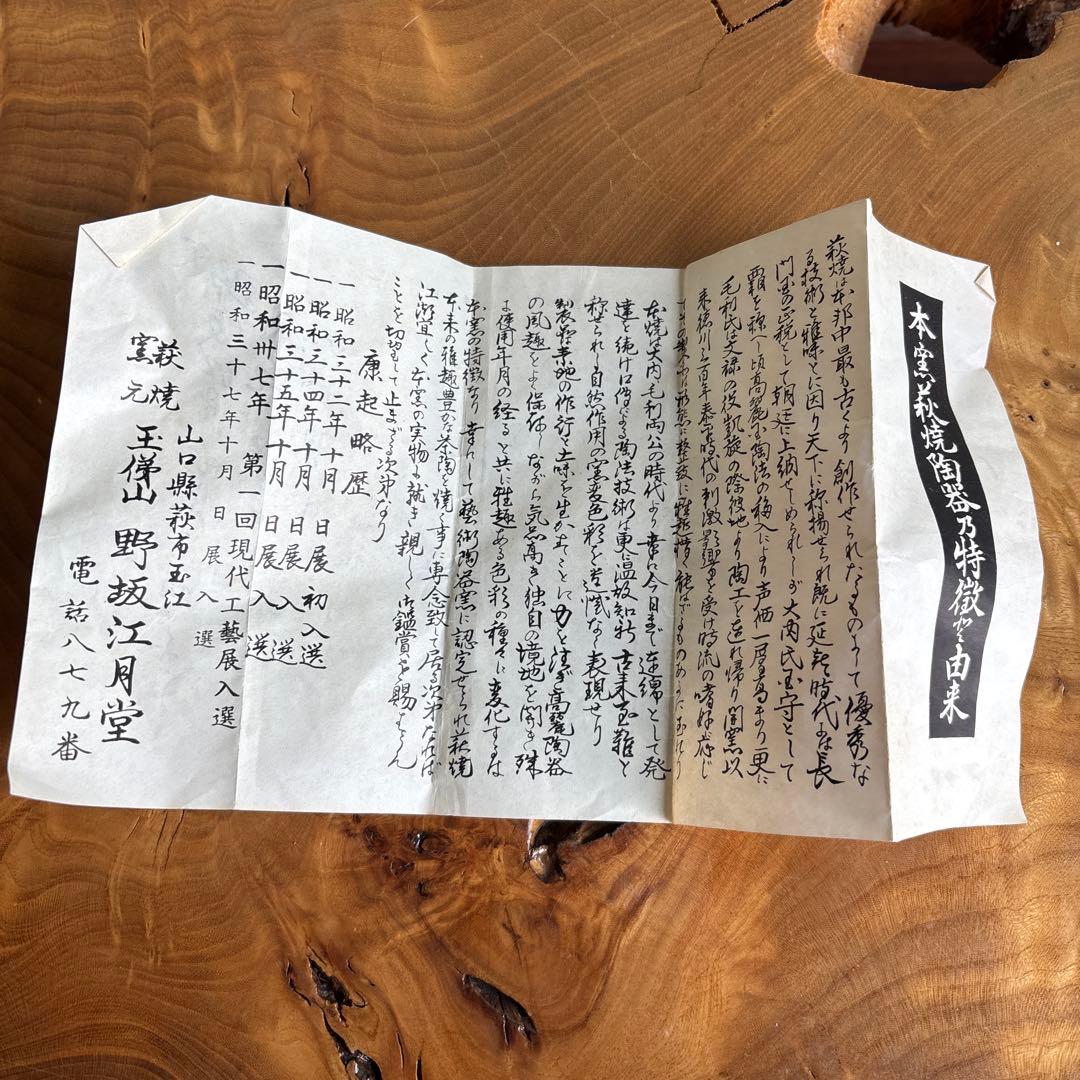 本窯萩焼陶器乃特徴と由来
萩焼は本邦中最も古くより創作せられたるものにして優秀な
る技術と雅味とに因り天下に称揚せられ既に延喜時代には長
門国の正税として朝廷に上納せしめられしが大内氏国守として
覇を称へし頃高麗の陶法の輸入により声価一層高まり更に
毛利氏は文禄の役凱旋の際彼地より陶工を連れ帰り開窯以
来徳川三百年泰平時代の刺激影響を受け時流の嗜好に応じ
本焼は大内毛利両公の時代より幸に今日まで連綿として発
達を続け口伝による陶法技術は更に温故知新古来至難と
称せられし自然作用の窯変色彩を遺憾なく表現せり
製品は素地の作行と土味を生かすことに力を注ぎ高麗陶器
の風趣をよく保存しながら気品高き独自の境地を開き殊
に使用年月の経ると共に雅趣ある色彩の種々に変化するは
本窯の特徴なり幸にして藝術陶器窯に認定せられ萩焼
本来の雅趣豊かな茶陶を焼く事に専念致して居る次第なれば
江湖宜しく本窯の実物に就き親しく御鑑賞を賜はらん
ことを切望して止まざる次第なり
康起略歴
一 昭和三十二年十月 日展初入選
一 昭和三十四年十月 日展入選
一 昭和三十五年十月 日展入選
一 昭和卅七年 第一回現代工藝展入選
一 昭和三十七年十月 日展入選
山口縣萩市玉江
萩焼窯元 玉僊山 野坂江月堂
電話八七九番